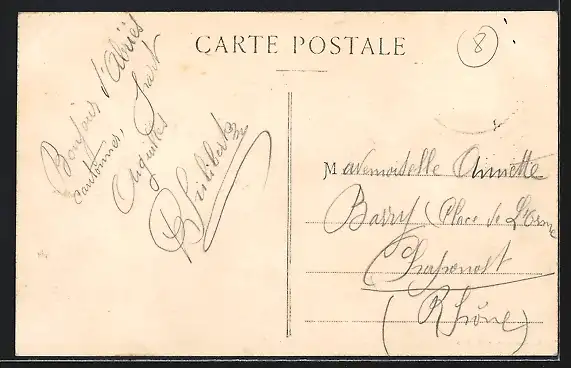 CARTE POSTALE
8
Bonjour d'Abriès
cantonner,
Philibert
Mademoiselle Annette
Barry Place de L'Orme
Chaponost
(Rhône)